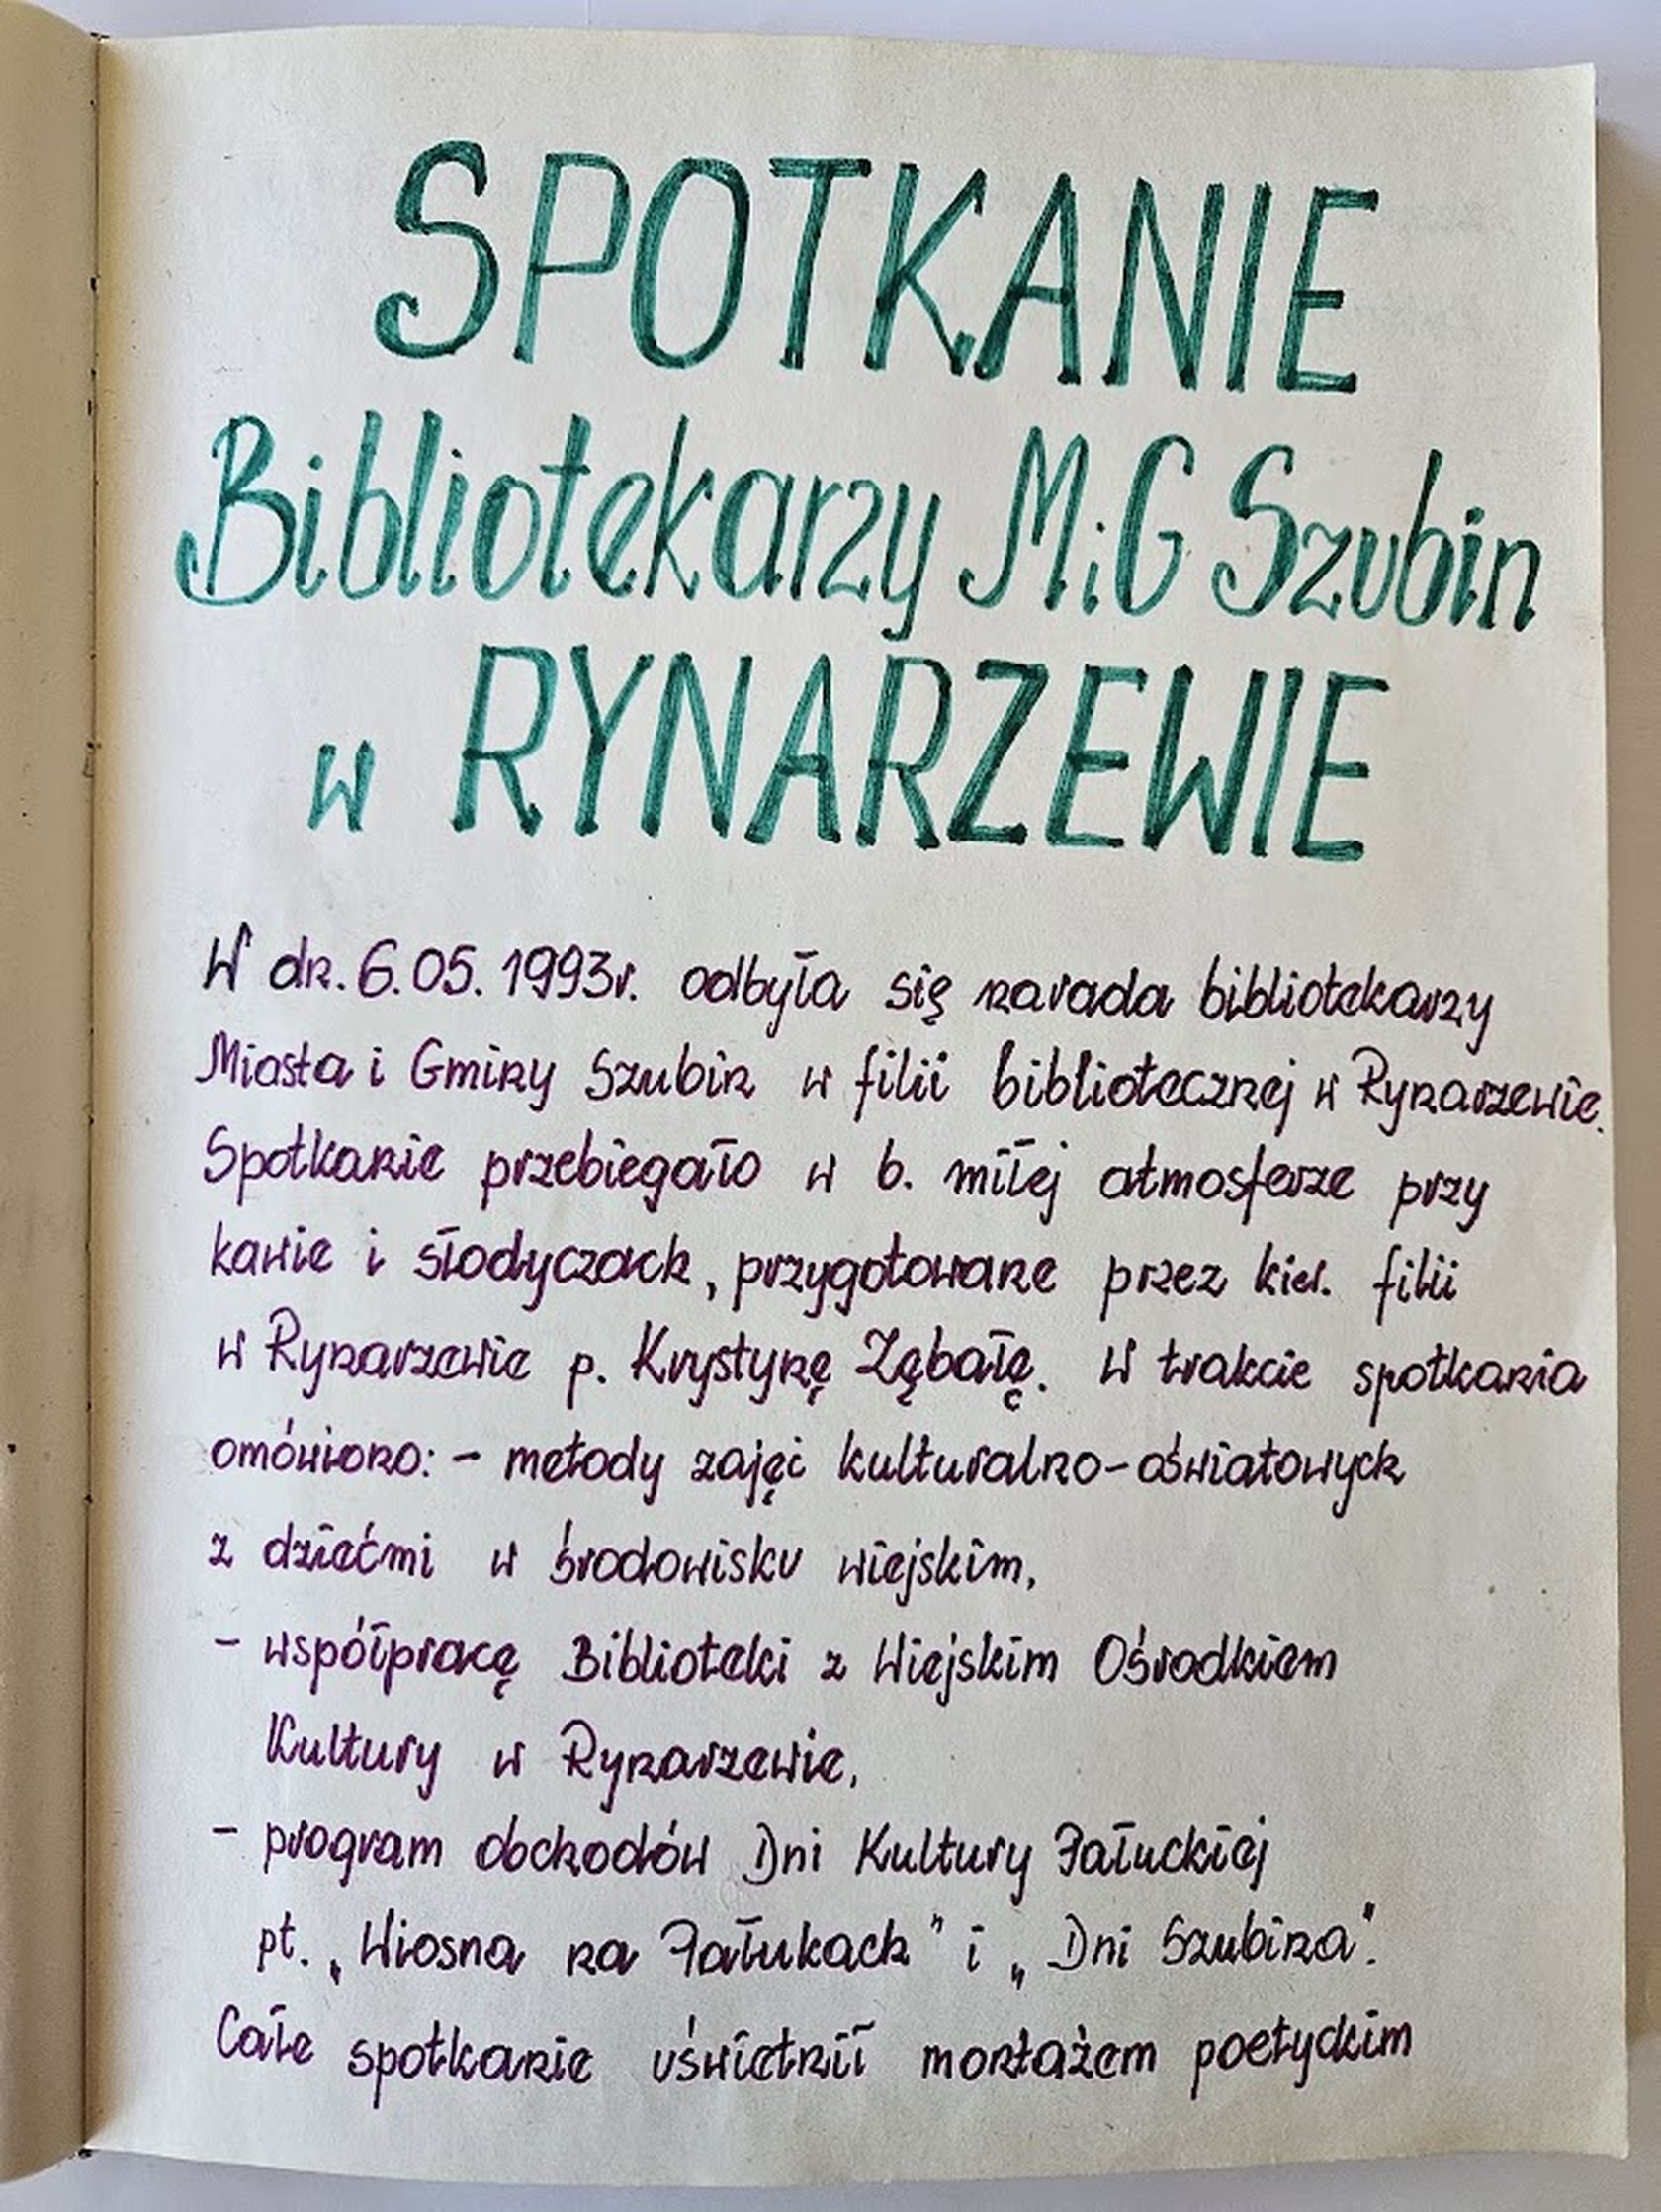 SPOTKANIE
Bibliotekarzy MiG Szubin
w RYNARZEWIE
W dn. 6.05.1993r. odbyła się narada bibliotekarzy
Miasta i Gminy Szubin w filii bibliotecznej w Rynarzewie.
Spotkanie przebiegało w b. miłej atmosferze przy
kawie i słodyczach, przygotowane przez kier. filii
w Rynarzewie p. Krystynę Zębałę. W trakcie spotkania
omówiono: - metody zajęć kulturalno-oświatowych
z dziećmi w środowisku wiejskim,
- współpracę Biblioteki z Wiejskim Ośrodkiem
Kultury w Rynarzewie,
- program obchodów Dni Kultury Pałuckiej
pt. „Wiosna na Pałukach" i „Dni Szubina".
Całe spotkanie uświetnił montażem poetyckim